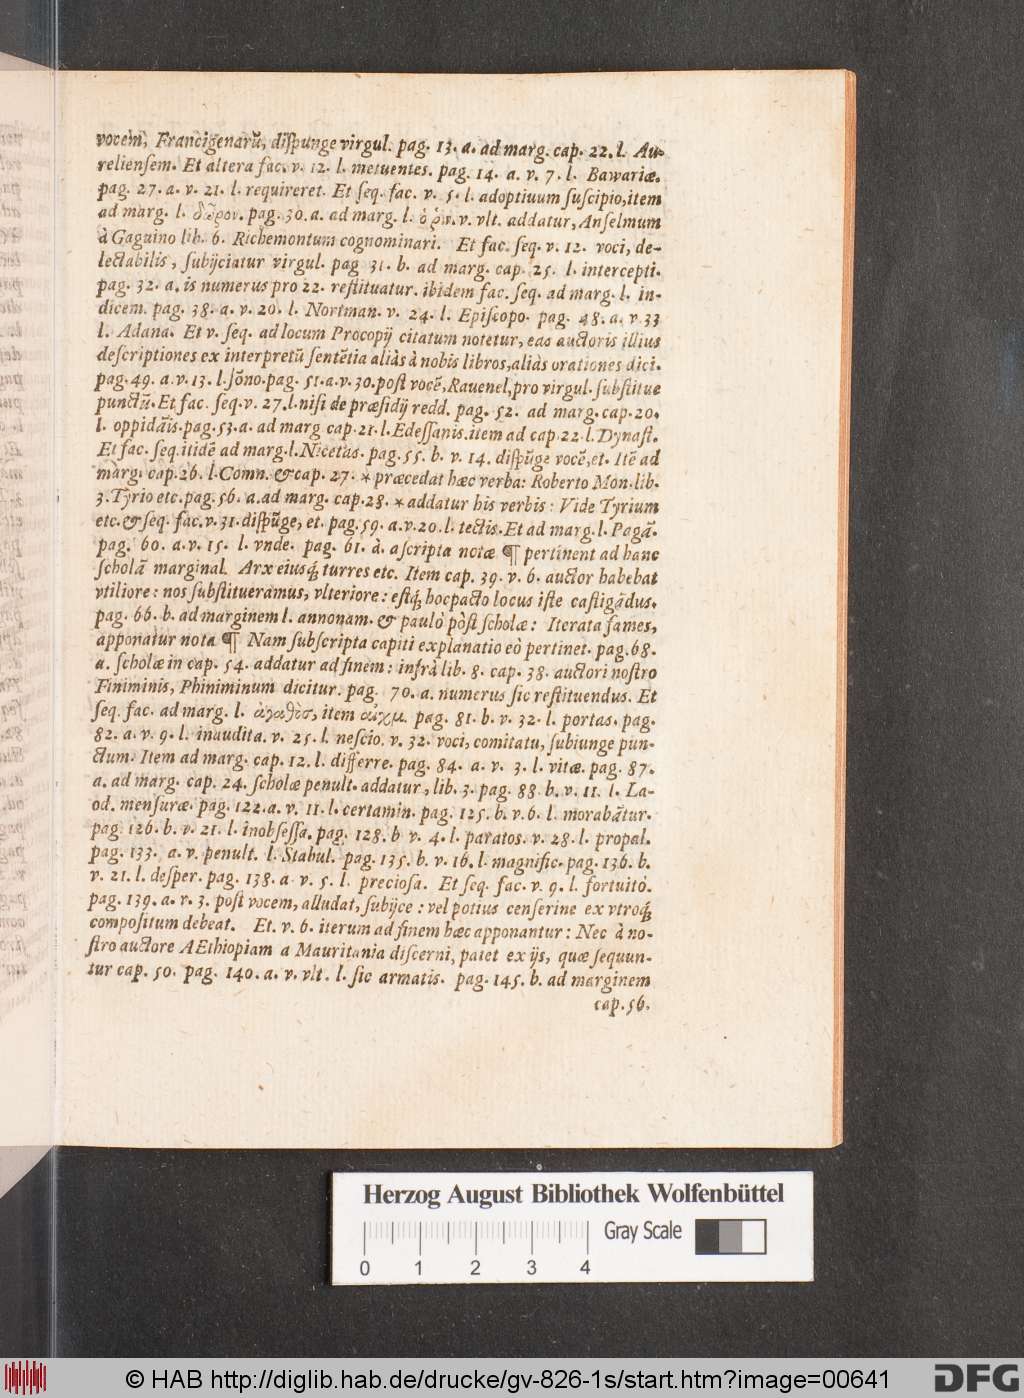 vocem, Francigenarū, diſpunge virgul. pag. 13. a. ad marg. cap. 22. l. Au-
relienſem. Et altera fac. v. 12. l. metuentes. pag. 14. a. v. 7. l. Bawariæ.
pag. 27. a. v. 21. l. requireret. Et ſeq. fac. v. 5. l. adoptiuum ſuſcipio, item
ad marg. l. δῶρον. pag. 30. a. ad marg. l. v. vlt. addatur, Anſelmum
à Gaguino lib. 6. Richemontum cognominari. Et fac. ſeq. v. 12. voci, de-
lectabilis, ſubijciatur virgul. pag 31. b. ad marg. cap. 25. l. intercepti.
pag. 32. a. is numerus pro 22. reſtituatur. ibidem fac. ſeq. ad marg. l. in-
dicem. pag. 38. a. v. 20. l. Nortman. v. 24. l. Epiſcopo. pag. 48. a. v 33
l. Adana. Et v. ſeq. ad locum Procopij citatum notetur, eas auctoris illius
deſcriptiones ex interpretū ſentētia aliàs à nobis libros, aliàs orationes dici.
pag. 49. a. v. 13. l. ſōno. pag. 51. a. v. 30. poſt vocē, Rauenel, pro virgul. ſubſtitue
punctū. Et fac. ſeq. v. 27. l. niſi de præſidij redd. pag. 52. ad marg. cap. 20.
l. oppidāis. pag. 53. a. ad marg cap. 21. l. Edeſſanis. item ad cap. 22. l. Dynaſt.
Et fac. ſeq. itidē ad marg. l. Nicetas. pag. 55. b. v. 14. diſpūge vocē, et. Itē ad
marg. cap. 26. l. Comn. & cap. 27. * præcedat hæc verba: Roberto Mon. lib.
3. Tyrio etc. pag. 56. a. ad marg. cap. 28. * addatur his verbis: Vide Tyrium
etc. & ſeq. fac. v. 31. diſpūge, et. pag. 59. a. v. 20. l. tectis. Et ad marg. l. Pagā.
pag. 60. a. v. 15. l. vnde. pag. 61. à. aſcripta notæ ¶ pertinent ad hanc
ſcholā marginal. Arx eiusq́; turres etc. Item cap. 39. v. 6. auctor habebat
vtiliore: nos ſubſtitueramus, vlteriore: eſtq́; hoc pacto locus iſte caſtigādus.
pag. 66. b. ad marginem l. annonam. & paulò pòſt ſcholæ: Iterata fames,
apponatur nota ¶ Nam ſubſcripta capiti explanatio eò pertinet. pag. 68.
a. ſcholæ in cap. 54. addatur ad finem: infrà lib. 8. cap. 38. auctori noſtro
Finiminis, Phiniminum dicitur. pag. 70. a. numerus ſic reſtituendus. Et
ſeq. fac. ad marg. l. item pag. 81. b. v. 32. l. portas. pag.
82. a. v. 9. l. inaudita. v. 25. l. neſcio. v. 32. voci, comitatu, ſubiunge pun-
ctum. Item ad marg. cap. 12. l. differre. pag. 84. a. v. 3. l. vitæ. pag. 87.
a. ad marg. cap. 24. ſcholæ penult. addatur, lib. 3. pag. 88. b. v. 11. l. La-
od. menſuræ. pag. 122. a. v. 11. l. certamin. pag. 125. b. v. 6. l. morabātur.
pag. 126. b. v. 21. l. inobſeſſa. pag. 128. b v. 4. l. paratos. v. 28. l. propal.
pag. 133. a. v. penult. l. Stabul. pag. 135. b. v. 16. l. magnific. pag. 136. b.
v. 21. l. deſper. pag. 138. a v. 5. l. precioſa. Et ſeq. fac. v. 9. l. fortuitò.
pag. 139. a. v. 3. poſt vocem, alludat, ſubijce: vel potius cenſerine ex vtroq́;
compoſitum debeat. Et. v. 6. iterum ad finem hæc apponantur: Nec à no-
ſtro auctore AEthiopiam a Mauritania diſcerni, patet ex ijs, quæ ſequun-
tur cap. 50. pag. 140. a. v. vlt. l. ſic armatis. pag. 145. b. ad marginem
cap. 56.
Herzog August Bibliothek Wolfenbüttel
Gray Scale
0 1 2 3 4
© HAB http://diglib.hab.de/drucke/gv-826-1s/start.htm?image=00641
DFG